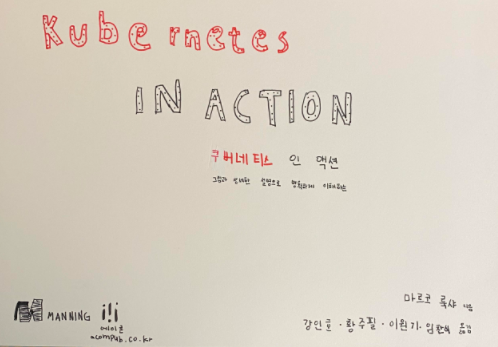 Kubernetes
IN ACTION
쿠버네티스 인 액션
그림과 상세한 설명으로 명확하게 이해하는
마르코 룩샤 지음
강인호 · 황주필 · 이원기 · 임찬식 옮김
MANNING
에이콘
acompub.co.kr